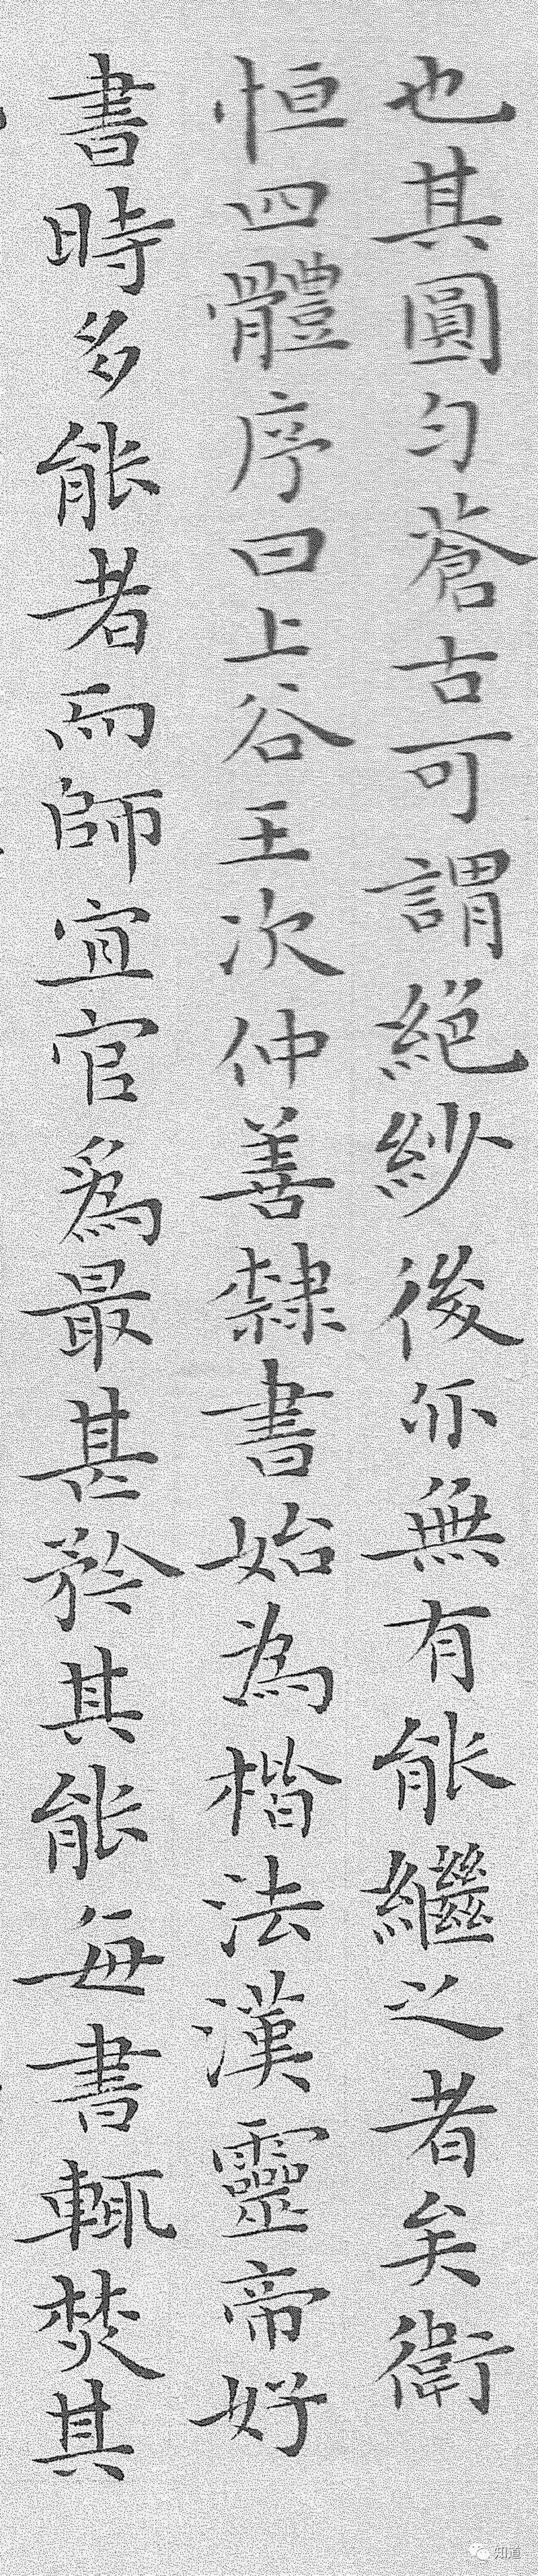 也其圓勻蒼古可謂絕紗後亦無有能繼之者矣衛
恒四體序曰上谷王次仲善隸書始為楷法漢靈帝好
書時多能者而師宜官爲最甚矜其能每書輒焚其
知道